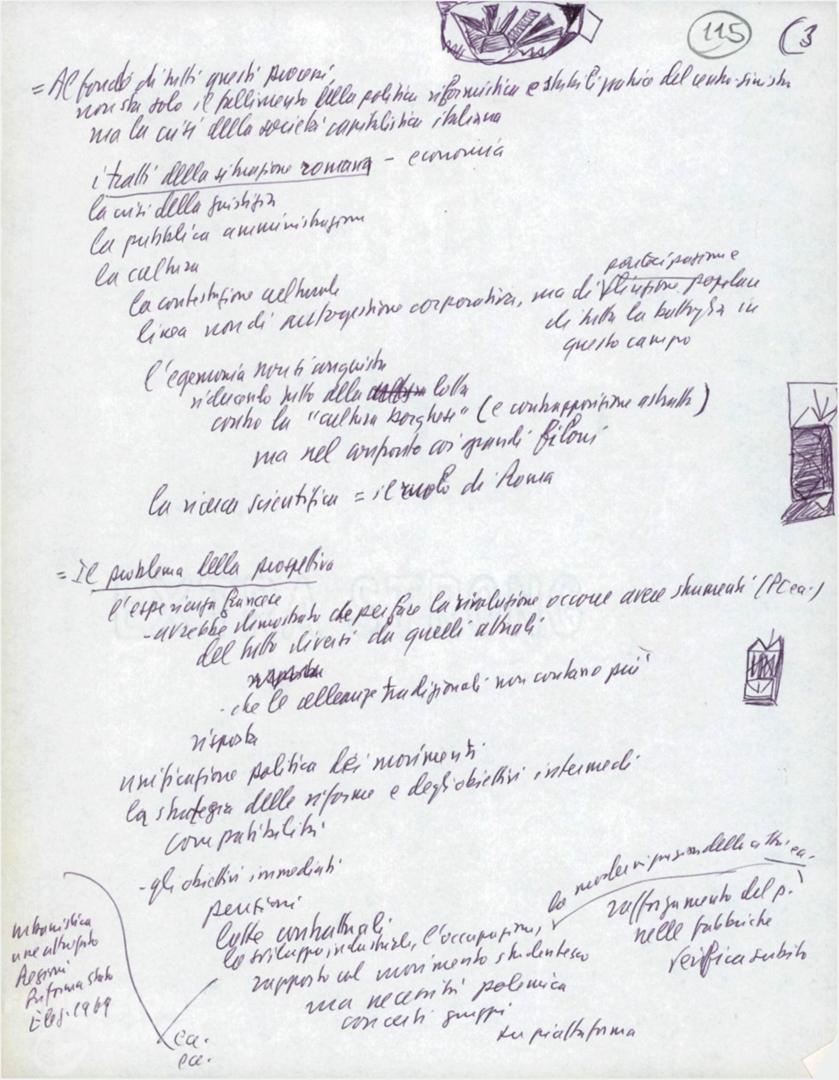 115 (3
= Al fondo di tutti questi processi,
non sta solo il fallimento della politica riformistica e del centro-sinistra
ma la crisi della società capitalistica italiana
i tratti della situazione romana - economia
la crisi della giustizia
la pubblica amministrazione
la cultura
la contestazione culturale
partecipazione e
linea non di autogestione corporativa, ma di direzione popolare
di tutta la battaglia in
questo campo
l'egemonia non si conquista
riducendo tutto alla lotta
contro la "cultura borghese" (e contrapposizione astratta)
ma nel confronto coi grandi filoni
la ricerca scientifica = il ruolo di Roma
= Il problema della prospettiva
l'esperienza francese
- avrebbe dimostrato che per fare la rivoluzione occorre avere strumenti (PC ecc.)
del tutto diversi da quelli attuali
risposta
- che le alleanze tradizionali non contano più
risposta
unificazione politica dei movimenti
la strategia delle riforme e degli obiettivi intermedi
compatibilità
- gli obiettivi immediati
pensioni
lotte contrattuali
lo sviluppo industriale, l'occupazione,
rapporto col movimento studentesco
ma necessità polemica
con certi gruppi
su piattaforma
la delle ecc.
rafforzamento del p.
nelle fabbriche
verifica subito
urbanistica
Regioni
Riforma Stato
Elez. 1969
ecc.
ecc.